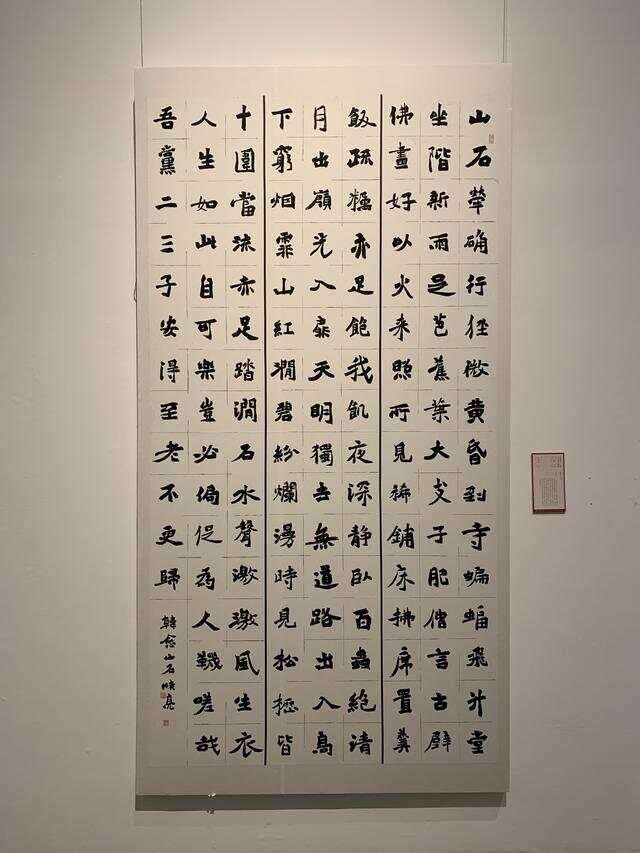 山石犖确行徑微黄昏到寺蝙蝠飛升堂
坐階新雨足芭蕉葉大支子肥僧言古壁
佛畫好以火来照所見稀鋪床拂席置羹
飯疏糲亦足飽我飢夜深静卧百蟲絶清
月出嶺光入扉天明獨去無道路出入高
下窮烟霏山紅澗碧紛爛漫時見松櫪皆
十圍當流赤足踏澗石水聲激激風生衣
人生如此自可樂豈必侷促為人鞿嗟哉
吾黨二三子安得至老不更歸
韓愈山石